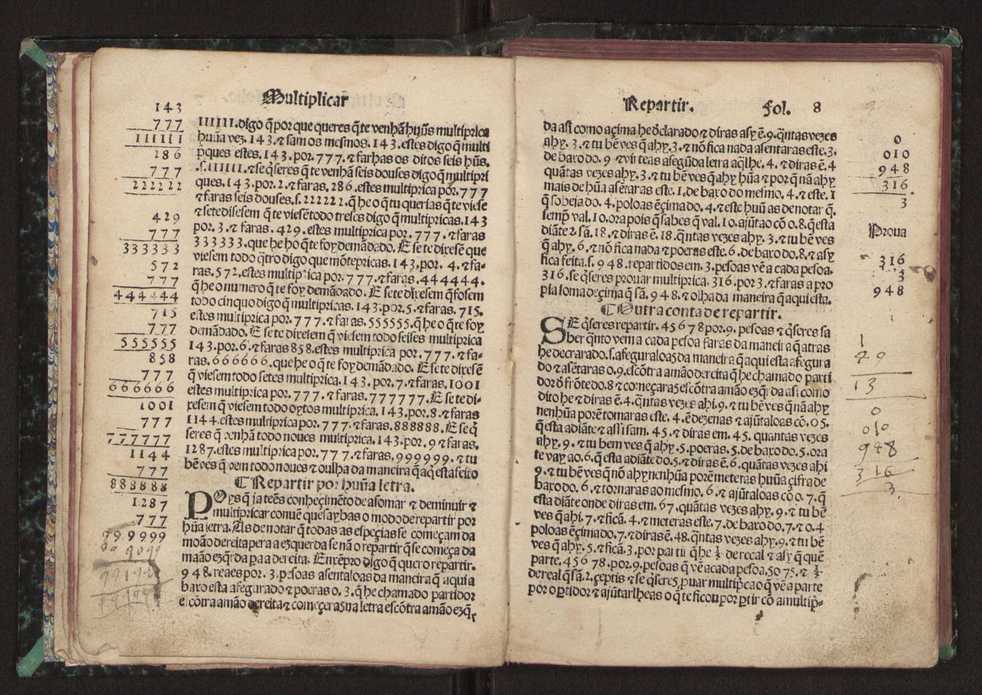 Multiplicar
143
777
111111
286
777
222222
429
777
333333
572
777
444444
715
777
555555
858
777
666666
1001
777
777777
1144
777
888888
1287
777
999999
111111. digo q̃ por que queres q̃ te venhã hũs multiprica
hũa vez. 143. ⁊ sam os mesmos. 143. estes digo q̃ multi
priques estes. 143. por. 777. ⁊ farhas os ditos seis hũs.
s. 111111. ⁊ se q̃seres q̃ te venhã seis douses digo q̃ multipri
ques. 143. por. 2. ⁊ faras. 286. estes multiprica por. 777
⁊ faras seis douses. s. 222222. q̃ he o q̃ tu querias q̃ te viese
⁊ se te disesem q̃ te viesē todo treses digo q̃ multipricas. 143
por. 3. ⁊ faras. 429. estes multiprica por. 777. ⁊ faras
333333. que he ho q̃ te foy demãdado. E se te dixesē que
viesem todo q̃tro digo que mõtepricas. 143. por. 4. ⁊ fa-
ras. 572. estes multiprica por. 777. ⁊ faras. 444444.
q̃ he o numero q̃ te foy demãdado. E se te dixesem q̃ fosem
todo cinquo digo q̃ multipricas. 143. por. 5. ⁊ faras. 715.
estes multiprica por. 777. ⁊ faras. 555555. q̃ he o q̃ te foy
demãdado. E se te dixesem q̃ viesem todo seises multiprica
143. por. 6. ⁊ faras 858. estes multiprica por. 777. ⁊ fa-
ras. 666666. que he o q̃ te foy demãdado. E se te dixesē
q̃ viesem todo setes multiprica. 143. por. 7. ⁊ faras. 1001
estes multiprica por. 777. ⁊ faras. 777777. E se te di-
xesem q̃ viesem todo oytos multiprica. 143. por. 8. ⁊ faras
1144. estes multiprica por. 777. ⁊ faras. 888888. E se q̃
seres q̃ venhã todo noues multiprica. 143. por. 9. ⁊ faras.
1287. estes multiprica por. 777. ⁊ faras. 999999. ⁊ tu
bē ves q̃ vem todo noues ⁊ oulha da maneira q̃ aq̃ esta feito
☾ Repartir por hũa letra.
POys q̃ ja tēs conhecimēto de asomar ⁊ deminuir ⁊
multipricar conuē que saybas o modo de repartir por
hũa letra. As de notar q̃ todas as especias se começam da
mão dereita pera a ezquerda se nã o repartir q̃ se começa da
mão ezq̃rda pa a dereita. Enxēpro digo q̃ quero repartir.
948. reaes por. 3. pesoas asentaloas da maneira q̃ aqui a
baxo esta afegurado ⁊ poeras o. 3. q̃ he chamado partidor
e cõtra a mão dereita ⁊ começaras na letra escõtra a mão ezq̃r
Repartir. Fol. 8
da asi como açima he declarado ⁊ diras asy ē. 9. q̃ntas vezes
ahy. 3. ⁊ tu bē ves q̃ ahy. 3. ⁊ nõ fica nada asentaras este. 3.
de baxo do. 9 ⁊ vi teas a segũda letra aq̃lhe. 4. ⁊ diras ē. 4
quãtas vezes ahy. 3. ⁊ tu bē ves q̃ ahy hũa ⁊ por q̃ nã ahy
mais de hũa asētaras este. 1. de baxo do mesmo. 4. ⁊ este. 1
q̃ sobeja do. 4. poloas ēçima do. 4. ⁊ este hũ as de notar q̃
semp̃ val. 10. ora pois q̃ sabes q̃ val. 10. ajũta o cõ o. 8. q̃ esta
diãte ⁊ sã. 18. ⁊ diras ē. 18. q̃ntas vezes ahy. 3. ⁊ tu bē ves
q̃ ahy. 6. ⁊ nõ fica nada ⁊ poeras este. 6. de baxo do. 8. ⁊ asy
fica feita. s. 948. repartidos em. 3. pesoas vē a cada pesoa.
316. se q̃seres prouar multiprica. 316. por. 3. ⁊ faras a pro
pia soma de çima q̃ sã. 948. ⁊ olha da maneira q̃ aqui esta.
☾ Outra conta de repartir.
SE q̃seres repartir. 45678 por. 9. pesoas ⁊ q̃seres sa
ber q̃nto vem a cada pesoa faras da maneira q̃ atras
he decrarado. s. afeguraloas da maneira q̃ aqui esta afegura
do ⁊ asētaras o. 9. escõtra a mão dereita q̃ he chamado parti
dor õ frõte do. 8 ⁊ começaras escõtra a mão ezq̃r da asi como
dito he ⁊ diras ē. 4. q̃ntas vezes ahi. 9. ⁊ tu bē ves q̃ nã ahy
nenhũa porē tomaras este. 4. ē dezenas ⁊ ajũtaloas cõ. o 5.
q̃ esta adiãte ⁊ assi fam. 45. ⁊ diras em. 45. quantas vezes
ahy. 9. ⁊ tu bem ves q̃ ahy. 5. poeras. 5. de baxo do. 5. ora
te vay ao. 6. q̃ esta adiãte do. 5. ⁊ diras ē. 6. quãtas vezes ahi
9. ⁊ tu bē ves q̃ nõ ahy nenhũa porē meteras hũa çifra de
baxo do. 6. ⁊ tornaras ao mesmo. 6. ⁊ ajũtaloas cõ o. 7. q̃
esta diãte onde diras em. 67. quãtas vezes ahy. 9. ⁊ tu bē
ves q̃ ahi. 7. ⁊ ficã. 4. ⁊ meteras este. 7. de baxo do. 7. ⁊ o. 4
poloas ēçima do. 7. ⁊ diras ē. 48. q̃ntas vezes ahy. 9. ⁊ tu bē
ves q̃ ahy. 5. ⁊ ficã. 3. por par tir q̃ he ⅓ de real ⁊ asy q̃ quē
parte. 45678. por. 9. pesoas q̃ vē a cada pesoa. 5075. ⁊ ⅓
de real q̃ sã. 2. çeptis ⁊ se q̃seres p̱uar multiprica o q̃ vē a parte
por o p̱tidor ⁊ ajũtarlheas o q̃ te ficou por p̱tir cõ a multip̃-
0
010
948
316
3
Proua
316
3
948
1
40
13
0
010
948
316
3